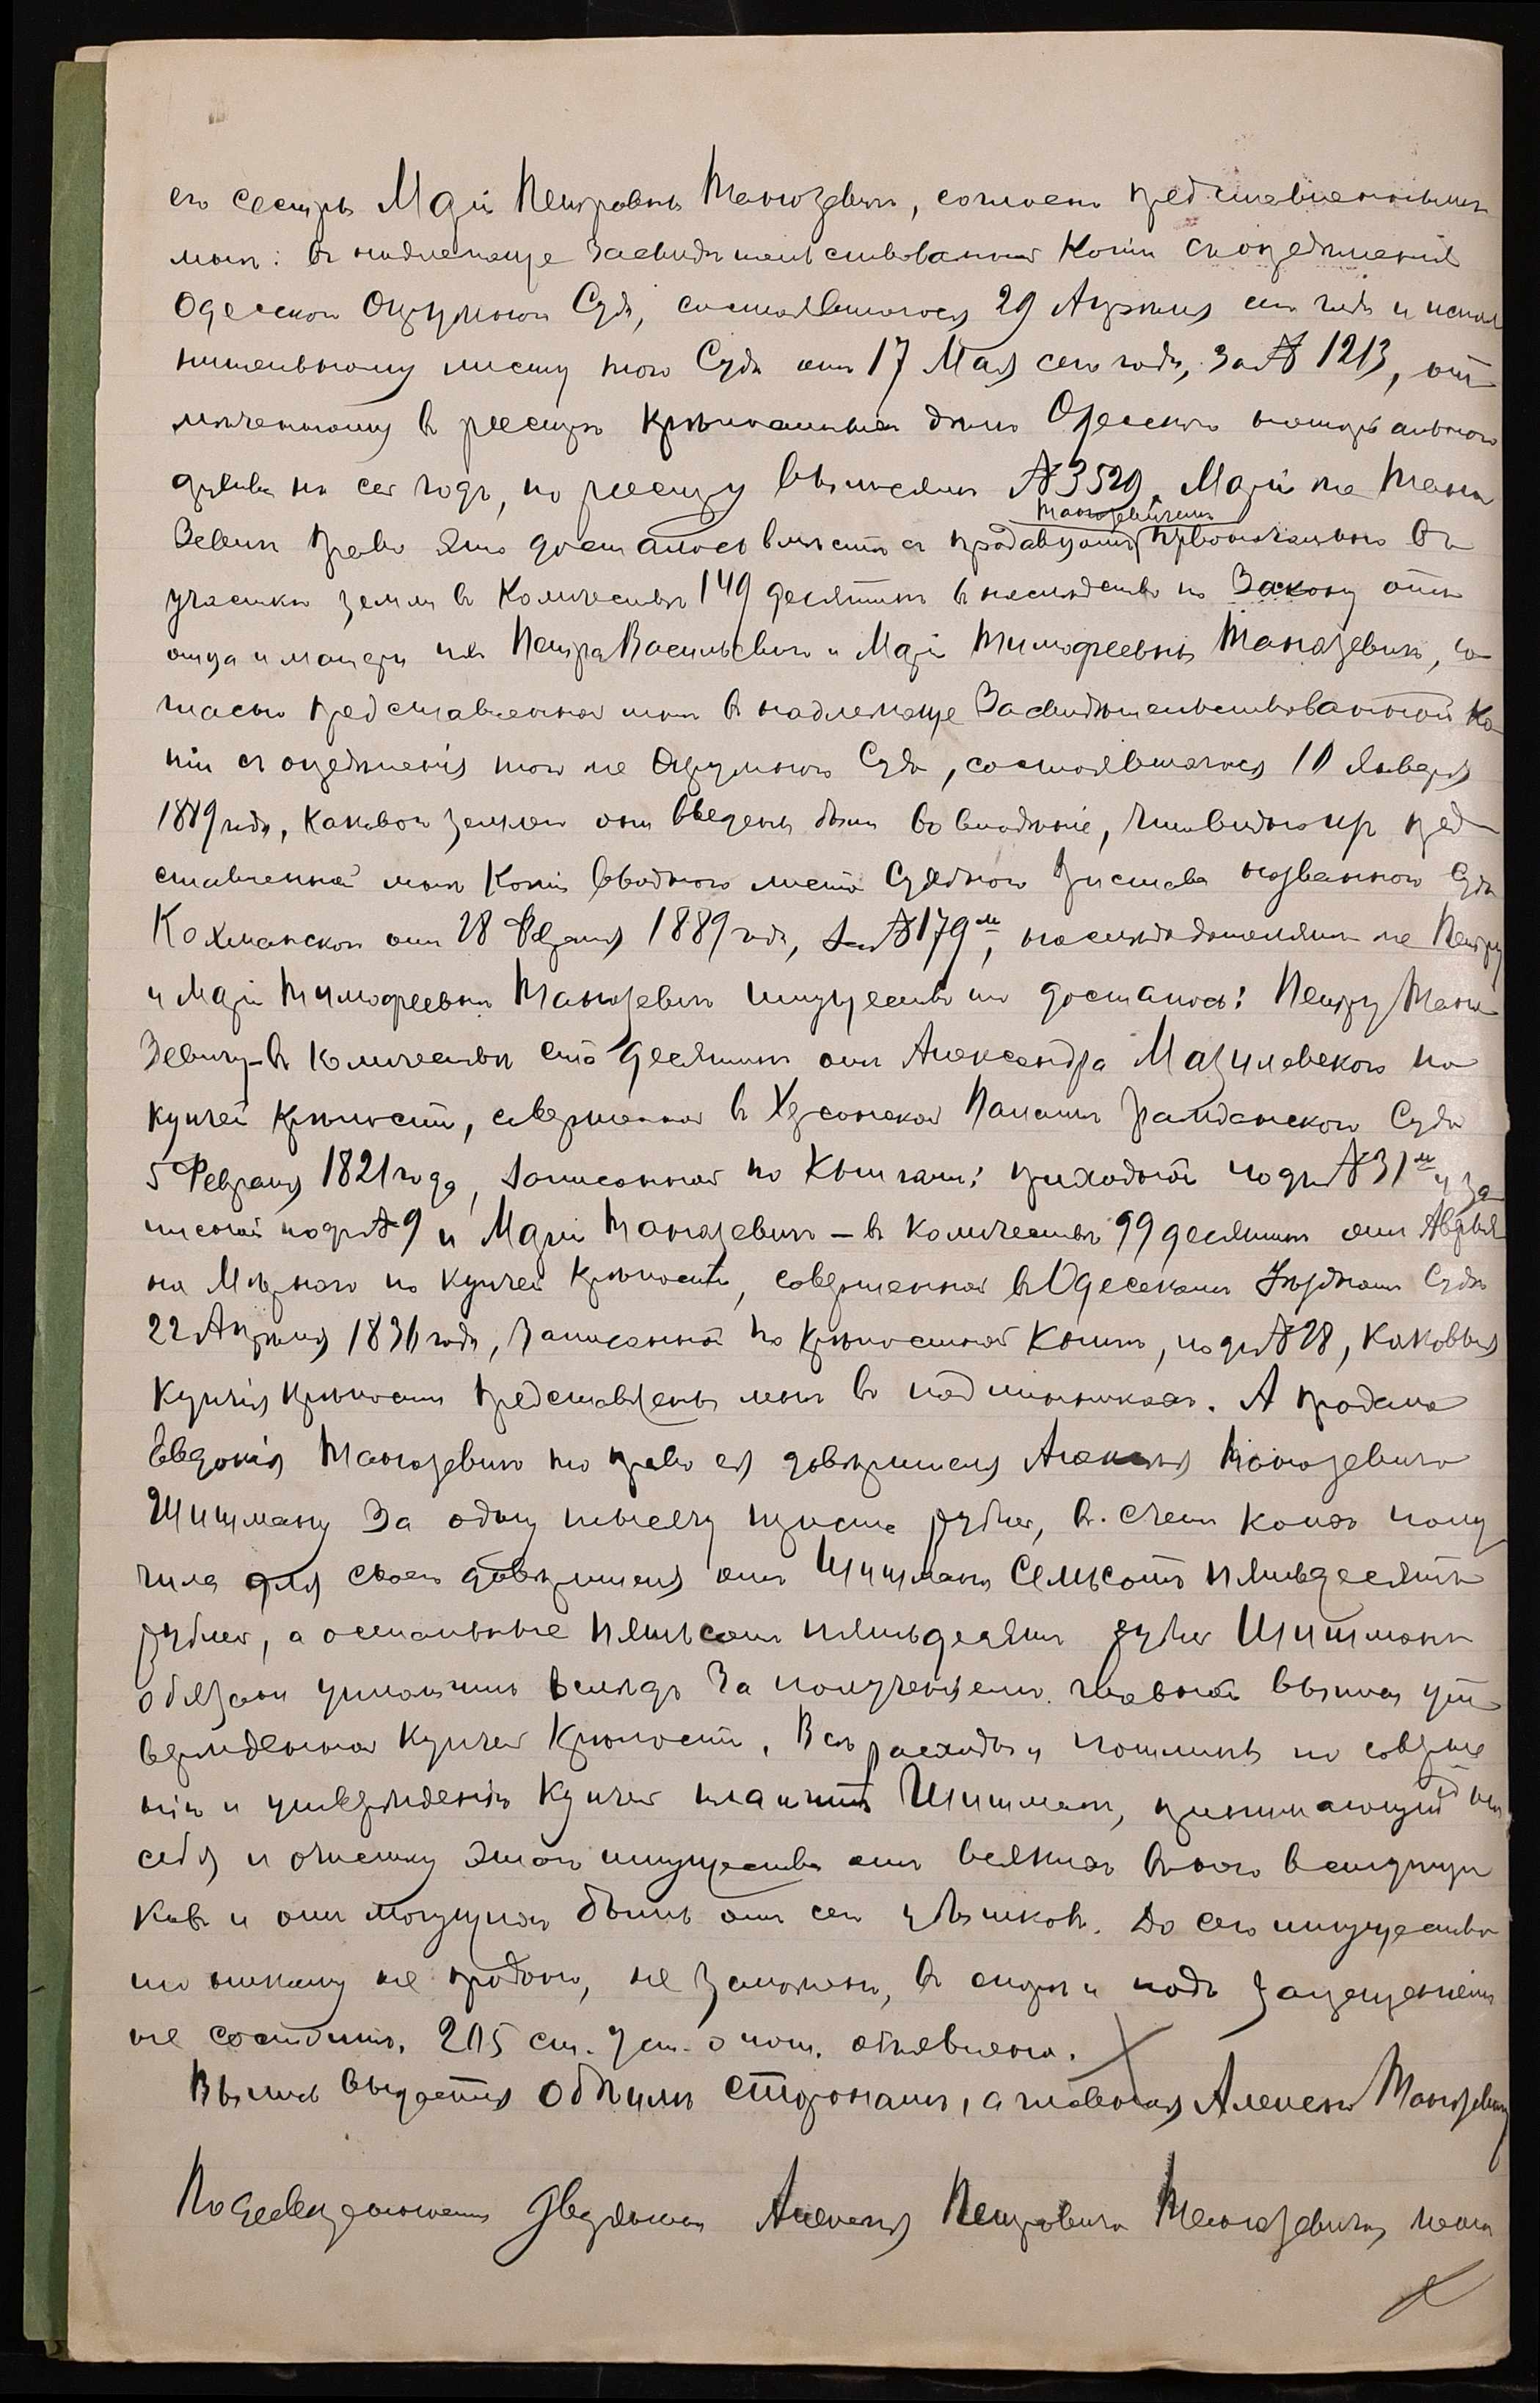 его сестрѣ Маріи Петровнѣ Танозевичъ, согласно представленнымъ
мнѣ: въ надлежаще засвидѣтельствованной копіи съ опредѣленія
Одесскаго Окружнаго Суда, состоявшагося 29 Апрѣля сего года и испол
нительному листу того Суда отъ 17 Мая сего года, за № 1213, отмѣ
мѣченному въ реестрѣ крѣпостныхъ дѣлъ Одесскаго нотаріальнаго
архива на сей годъ, по реестру № 3529. Маріи же Тано
зевичъ право это досталось вмѣстѣ съ продавцомъ Танозевичемъ первоначально въ
участкѣ земли въ количествѣ 149 десятинъ въ наслѣдство по закону отъ
отца и матери ихъ Петра Васильевича и Маріи Тимофеевны Танозевичъ, со
гласно представленной мнѣ въ надлежаще засвидѣтельствованной ко
піи съ опредѣленія того же Окружнаго Суда, состоявшагося 10 Января
1889 года, каковой землей они введены были во владѣніе, какъ видно изъ пред
ставленной мнѣ копіи вводнаго листа Судебнаго Пристава названнаго Суда
Кохманскаго отъ 28 Февраля 1889 года, за № 179м, наслѣдодателямъ же Петру
и Маріи Тимофеевнѣ Танозевичъ имущество это досталось: Петру Тано
зевичу – въ количествѣ ста десятинъ отъ Александра Мазилевскаго по
купчей крѣпости, совершенной въ Херсонской Палатѣ Гражданскаго Суда
5 Февраля 1821 года, записанной по книгамъ: приходной подъ № 31м и за
писной подъ № 9 и Маріи Танозевичъ – въ количествѣ 99 десятинъ отъ
на Мирнаго по купчей крѣпости, совершенной въ Одесскомъ Уѣздномъ Судѣ
22 Апрѣля 1830 года, записанной по крѣпостной книгѣ, подъ № 28, каковыя
купчія крѣпости представлены мнѣ въ подлинникахъ. А продала
Евдокія Танозевичъ это право ея довѣрителя Алексѣя Танозевича
Шишману за одну тысячу триста рублей, въ счетъ коихъ полу
чила для своего довѣрителя отъ Шишмана семьсотъ пятьдесятъ
рублей, а остальные пятьсотъ пятьдесятъ рублей Шишманъ
обязанъ уплатить вслѣдъ за полученіемъ главной выписи утв
вержденной купчей крѣпости. Всѣ расходы и пошлины по соверше
нію и утвержденію купчей платитъ Шишманъ, принимающій на
себя и очистку этого имущества отъ всякихъ въ него вступщи
ковъ и отъ могущихъ быть отъ сего убытковъ. До сего имущество
это никому не продано, не заложено, въ спорѣ и подъ запрещеніемъ
не состоитъ. 205 ст. уст. о пошл. объявлена.
Выпись выдается обѣимъ сторонамъ, а главная Алексѣю Танозевичу
По довѣренности Дворянина Алексѣя Петровича Танозевича, жена